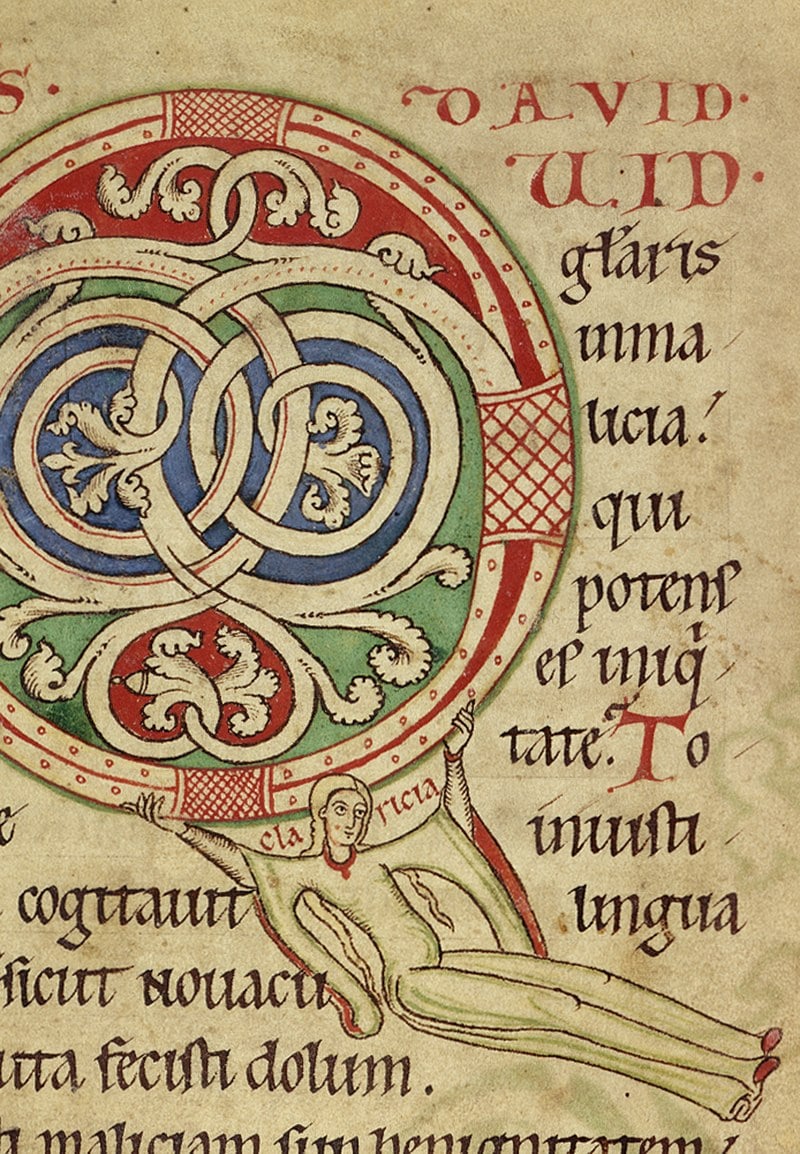 S. DAVID.
UID.
gl̃aris
inma
licia!
qui
potens
es iniq̇
tate. To
cla ricia
e inuisti
cogitauit lingua
sicut nouacu
fecisti dolum.
maliciam benignitatem